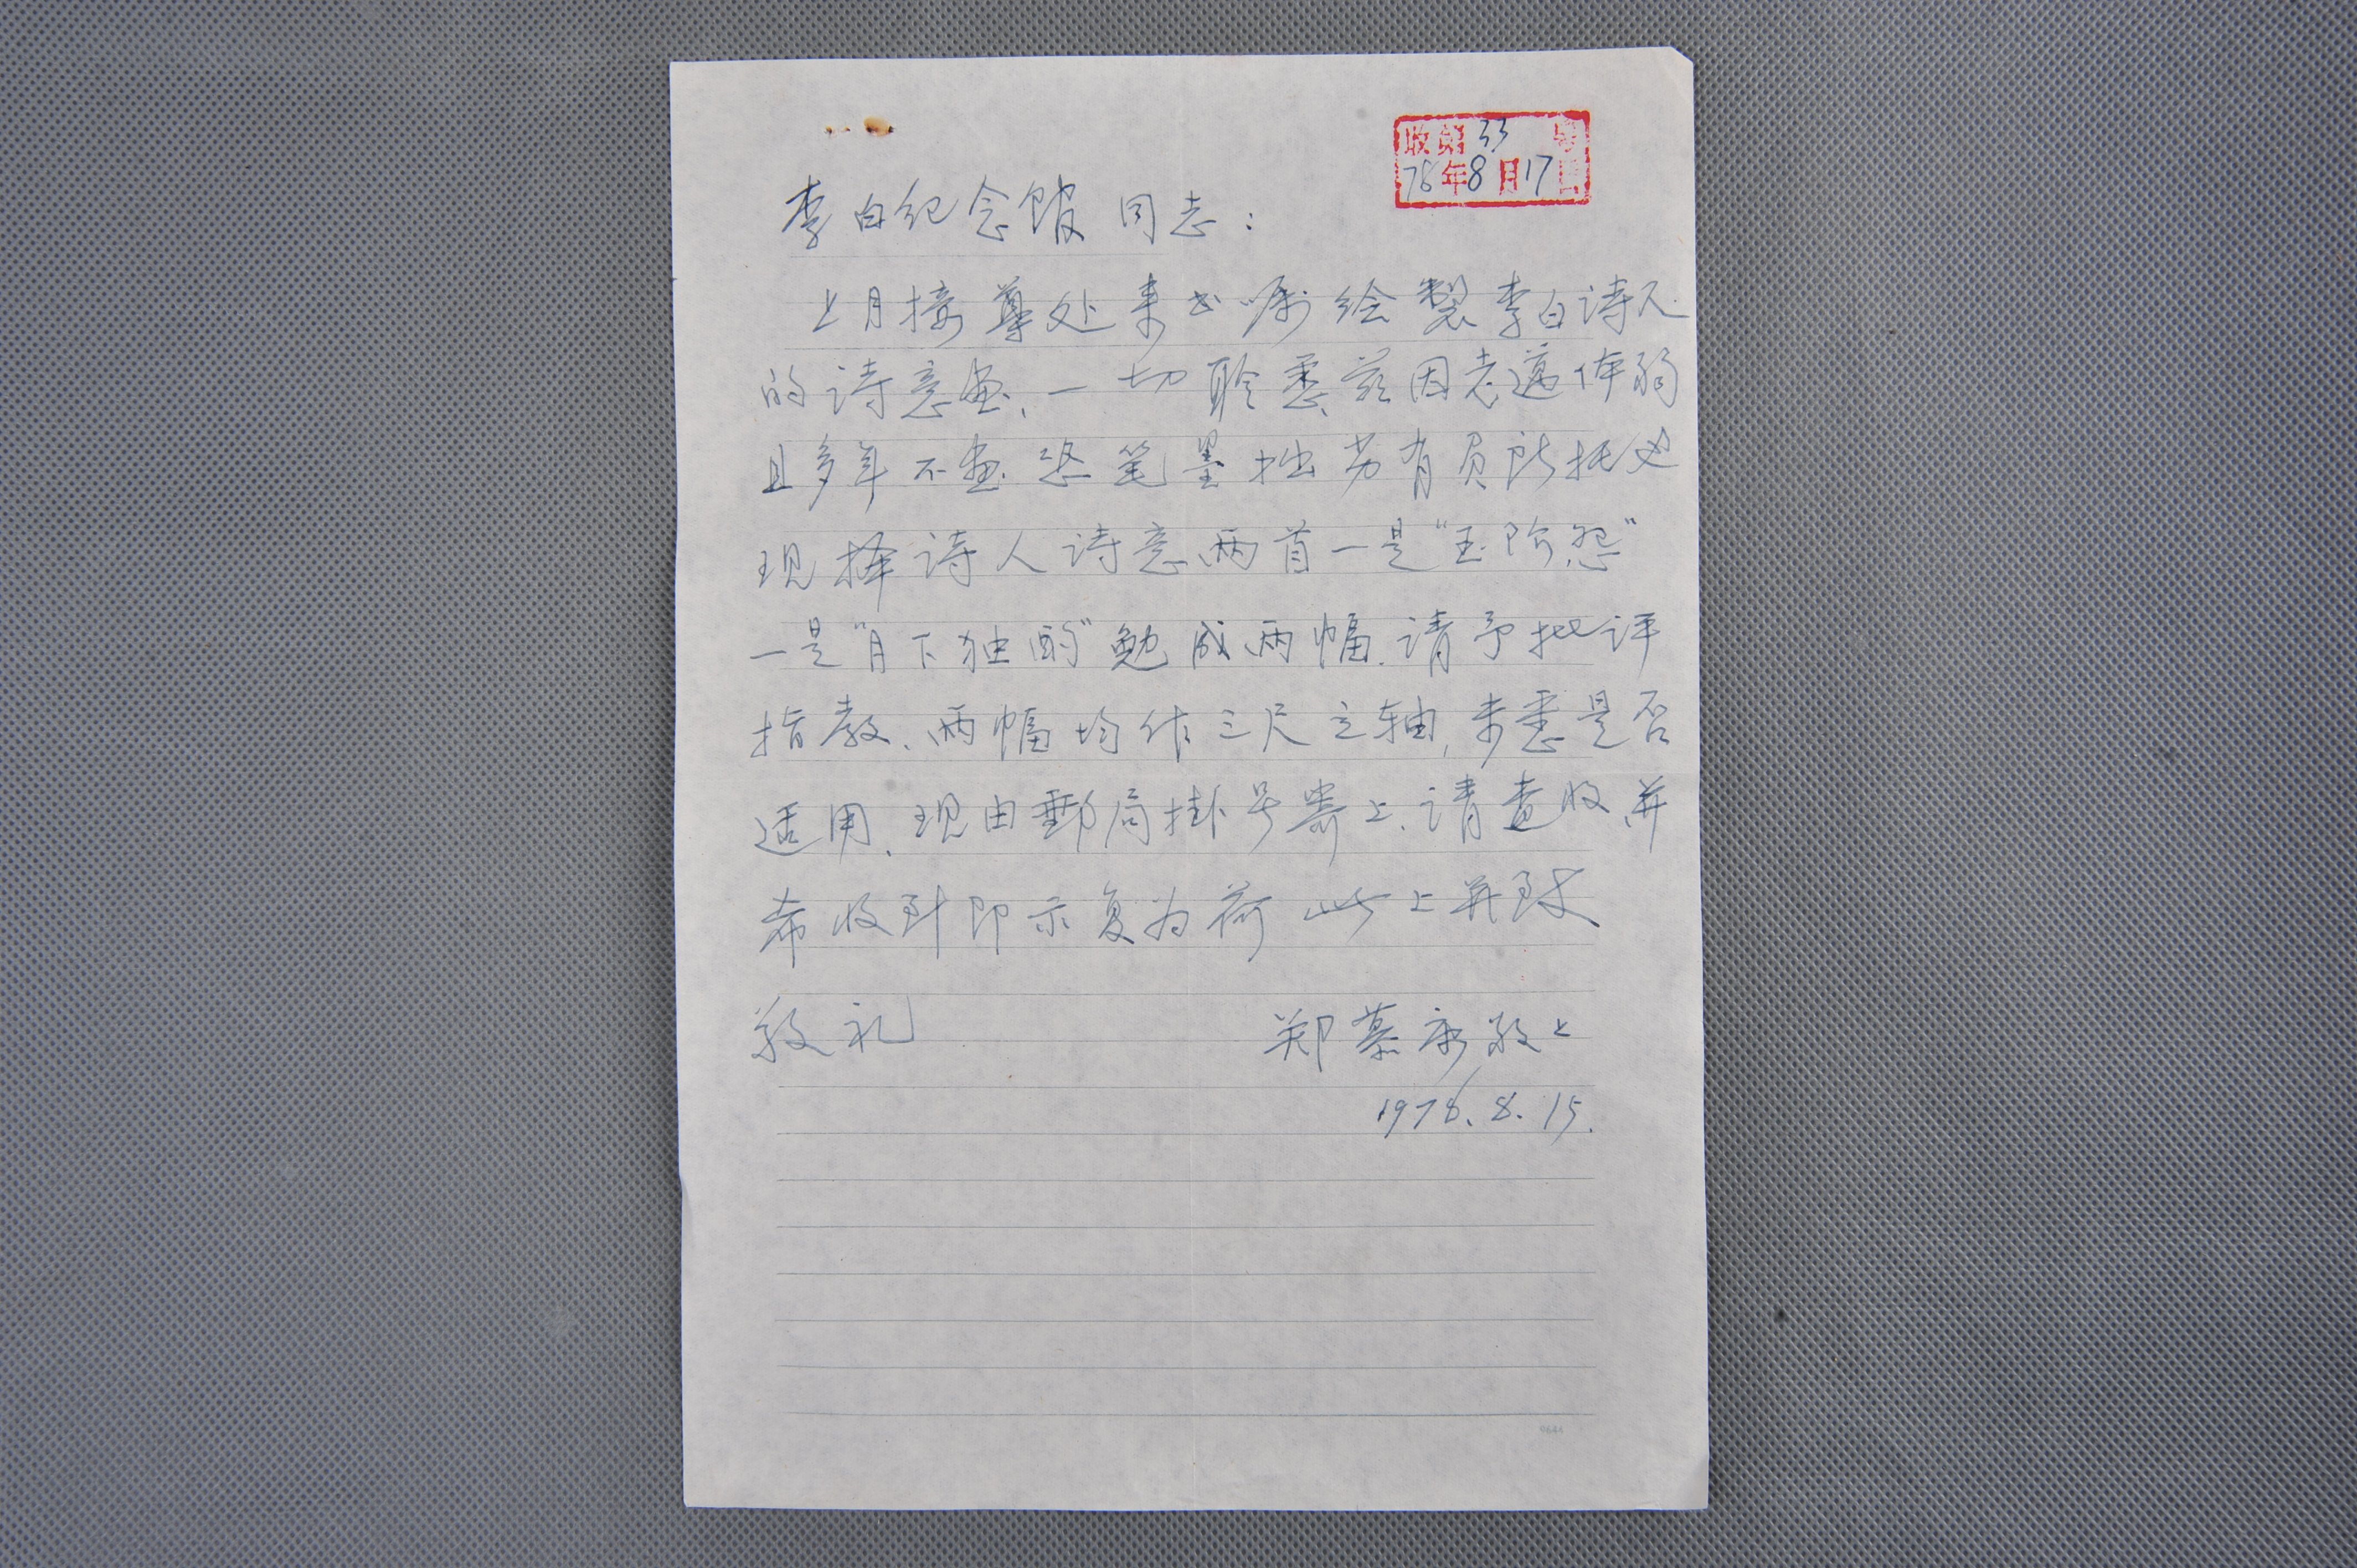 收第33号
78年8月17日
李白纪念馆 同志：
上月接尊处来书嘱绘製李白诗人
的诗意画、一切聆悉、兹因老迈体弱
且多年不画恐笔墨拙劣有负所托也
现择诗人诗意两首一是"玉阶怨"
一是"月下独酌"勉成两幅.请予批评
指教、两幅均作三尺立轴,未悉是否
适用、现由郵局掛号寄上、请查收并
希收到即示复为荷 此上并致
敬礼
郑慕康敬上
1978.8.15.